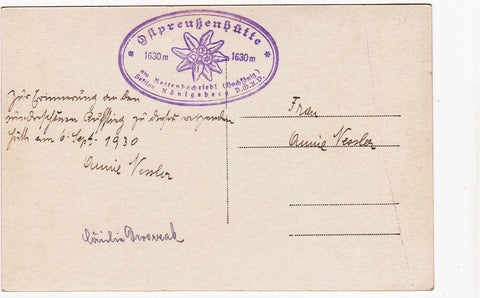 Ostpreußenhütte
1630 m 1630 m
am Rettenbachriedl (Hochkönig)
Sektion Königsberg D.Ö.A.V.
Zur Erinnerung an den
wunderschönen Ausflug zu dieser
Hütte am 6. Sept. 1930
Annie Nessler
Frau
Annie Nessler